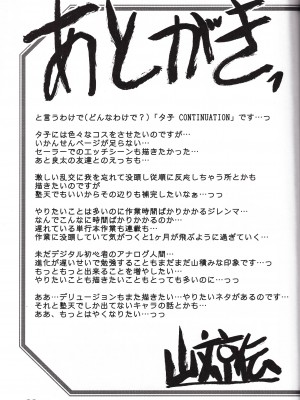 あとがき、
と言うわけで(どんなわけで？)「夕子 CONTINUATION」です…っ
夕子には色々なコスをさせたいのですが…
いかんせんページが足らない…
セーラーでのエッチシーンも描きたかった…
あと良太の友達とのえっちも…
激しい乱交に我を忘れて没頭し従順に反応しちゃう所とかも
描きたいのですが
塾天でもいいからその辺りも補完したいなぁ…っっ
やりたいことは多いのに作業時間ばかりかかるジレンマ…
なんでこんなに時間ばかりかかるのか…
遅れている単行本作業も連載も…
作業に没頭していて気がつくと1ヶ月が飛ぶように過ぎていく…
未だデジタル初心者のアナログ人間…
進化が遅いせいで勉強することもまだまだ山積みな印象です…っ
もっともっと出来ることを増やしたい…
やりたいことも描きたいこともとっても多いのに…っっ
ああ…デリュージョンもまた描きたい…やりたいネタがあるのです…
それと塾天でしか出てないキャラの話とかも…
ああ、もっとはやくなりたい…っっ
山文京伝